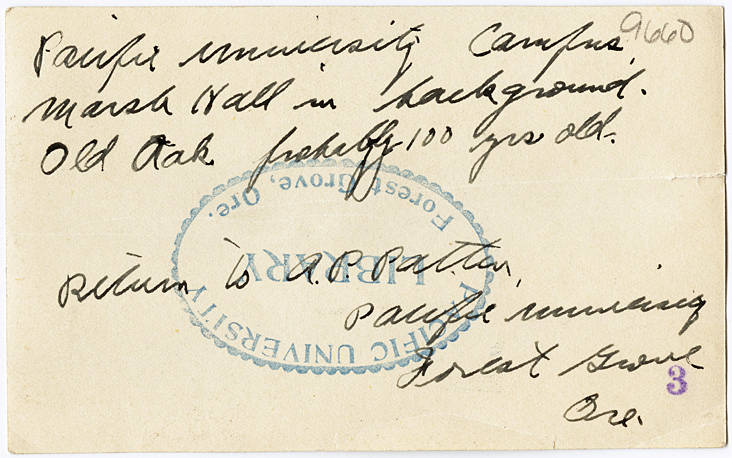 9660
Pacific University Campus
Marsh Hall in background.
Old Oak probably 100 yrs old.
Return to A.P. Patten,
Pacific University
Forest Grove
Ore.
3
PACIFIC UNIVERSITY
LIBRARY
Forest Grove, Ore.